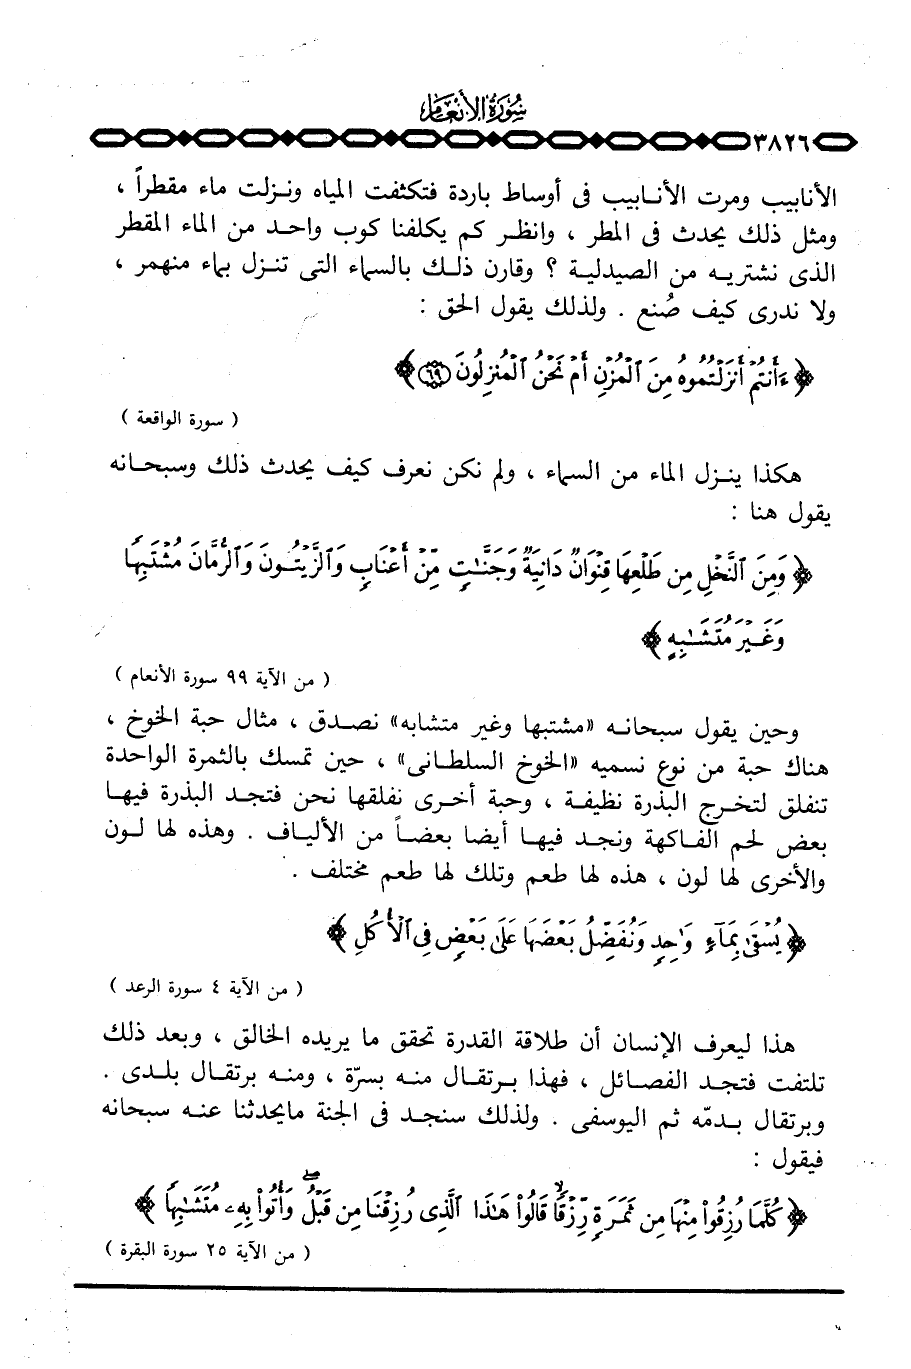 سورة الأنعام
٣٨٢٦
الأنابيب ومرت الأنابيب فى أوساط باردة فتكثفت المياه ونزلت ماء مقطراً ،
ومثل ذلك يحدث فى المطر ، وانظر كم يكلفنا كوب واحد من الماء المقطر
الذى نشتريه من الصيدلية ؟ وقارن ذلك بالسماء التى تنزل بماء منهمر ،
ولا ندرى كيف صُنع . ولذلك يقول الحق :
﴿ ءَأَنتُمْ أَنزَلْتُمُوهُ مِنَ ٱلْمُزْنِ أَمْ نَحْنُ ٱلْمُنزِلُونَ ٦٩ ﴾
( سورة الواقعة )
هكذا ينزل الماء من السماء ، ولم نكن نعرف كيف يحدث ذلك وسبحانه
يقول هنا :
﴿ وَمِنَ ٱلنَّخْلِ مِن طَلْعِهَا قِنْوَانٌ دَانِيَةٌ وَجَنَّـٰتٍ مِّنْ أَعْنَابٍ وَٱلزَّيْتُونَ وَٱلرُّمَّانَ مُشْتَبِهًا
وَغَيْرَ مُتَشَـٰبِهٍ ﴾
( من الآية ٩٩ سورة الأنعام )
وحين يقول سبحانه «مشتبها وغير متشابه» نصدق ، مثال حبة الخوخ ،
هناك حبة من نوع نسميه «الخوخ السلطانى» ، حين تمسك بالثمرة الواحدة
تنفلق لتخرج البذرة نظيفة ، وحبة أخرى نفلقها نحن فتجد البذرة فيها
بعض لحم الفاكهة ونجد فيها أيضا بعضاً من الألياف . وهذه لها لون
والأخرى لها لون ، هذه لها طعم وتلك لها طعم مختلف .
﴿ يُسْقَىٰ بِمَآءٍ وَٰحِدٍ وَنُفَضِّلُ بَعْضَهَا عَلَىٰ بَعْضٍ فِى ٱلْأُكُلِ ﴾
( من الآية ٤ سورة الرعد )
هذا ليعرف الإنسان أن طلاقة القدرة تحقق ما يريده الخالق ، وبعد ذلك
تلتفت فتجد الفصائل ، فهذا برتقال منه بسرّة ، ومنه برتقال بلدى .
وبرتقال بدمّه ثم اليوسفى . ولذلك سنجد فى الجنة مايحدثنا عنه سبحانه
فيقول :
﴿ كُلَّمَا رُزِقُوا۟ مِنْهَا مِن ثَمَرَةٍ رِّزْقًا ۙ قَالُوا۟ هَـٰذَا ٱلَّذِى رُزِقْنَا مِن قَبْلُ ۖ وَأُتُوا۟ بِهِۦ مُتَشَـٰبِهًا ﴾
( من الآية ٢٥ سورة البقرة )